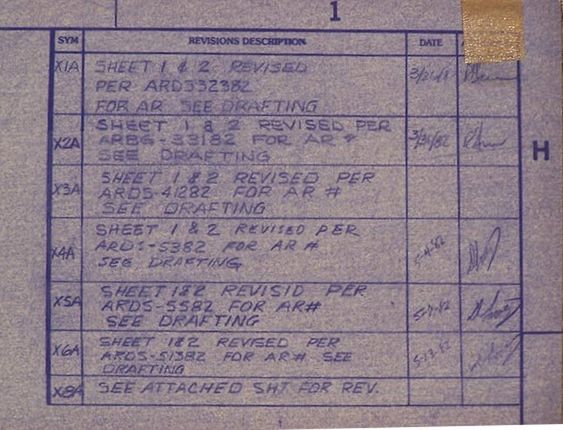 1
SYM REVISIONS DESCRIPTION DATE
X1A SHEET 1 & 2 REVISED
PER ARDS32382
FOR AR SEE DRAFTING
X2A SHEET 1 & 2 REVISED PER 3/31/82
33182 FOR AR #
SEE DRAFTING
X3A SHEET 1 & 2 REVISED PER
ARDS-41282 FOR AR #
SEE DRAFTING
X4A SHEET 1 & 2 REVISED PER 5-4-82
ARDS-5382 FOR AR #
SEE DRAFTING
X5A SHEET 1&2 REVISID PER 5-7-82
ARDS-5582 FOR AR#
SEE DRAFTING
X6A SHEET 1&2 REVISED PER 5-13-82
ARDS-51382 FOR AR# SEE
DRAFTING
SEE ATTACHED SHT FOR REV.
H